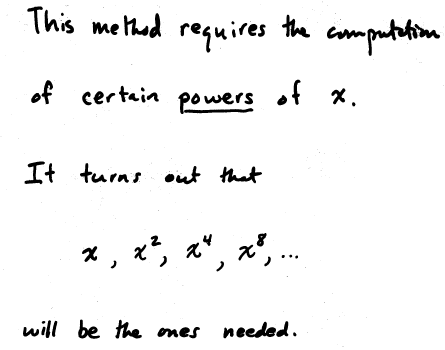 This method requires the computation
of certain powers of x.
It turns out that
x, x², x⁴, x⁸, ...
will be the ones needed.